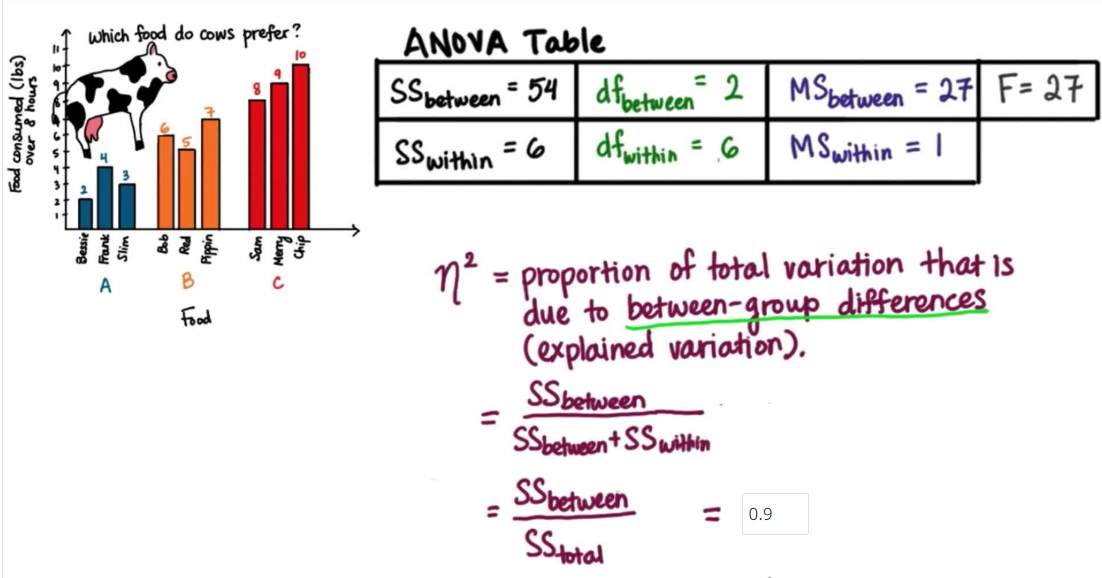 Which food do cows prefer?
Food consumed (lbs)
over 8 hours
11
10
9
8
6
5
4
3
2
1
2
4
3
6
5
7
8
9
10
Bessie
Frank
Slim
Bob
Red
Pippin
Sam
Merry
Chip
A
B
C
Food
ANOVA Table
SSbetween = 54
dfbetween = 2
MSbetween = 27
F = 27
SSwithin = 6
dfwithin = 6
MSwithin = 1
η² = proportion of total variation that is
due to between-group differences
(explained variation).
= SSbetween
SSbetween + SSwithin
= SSbetween
SStotal
= 0.9